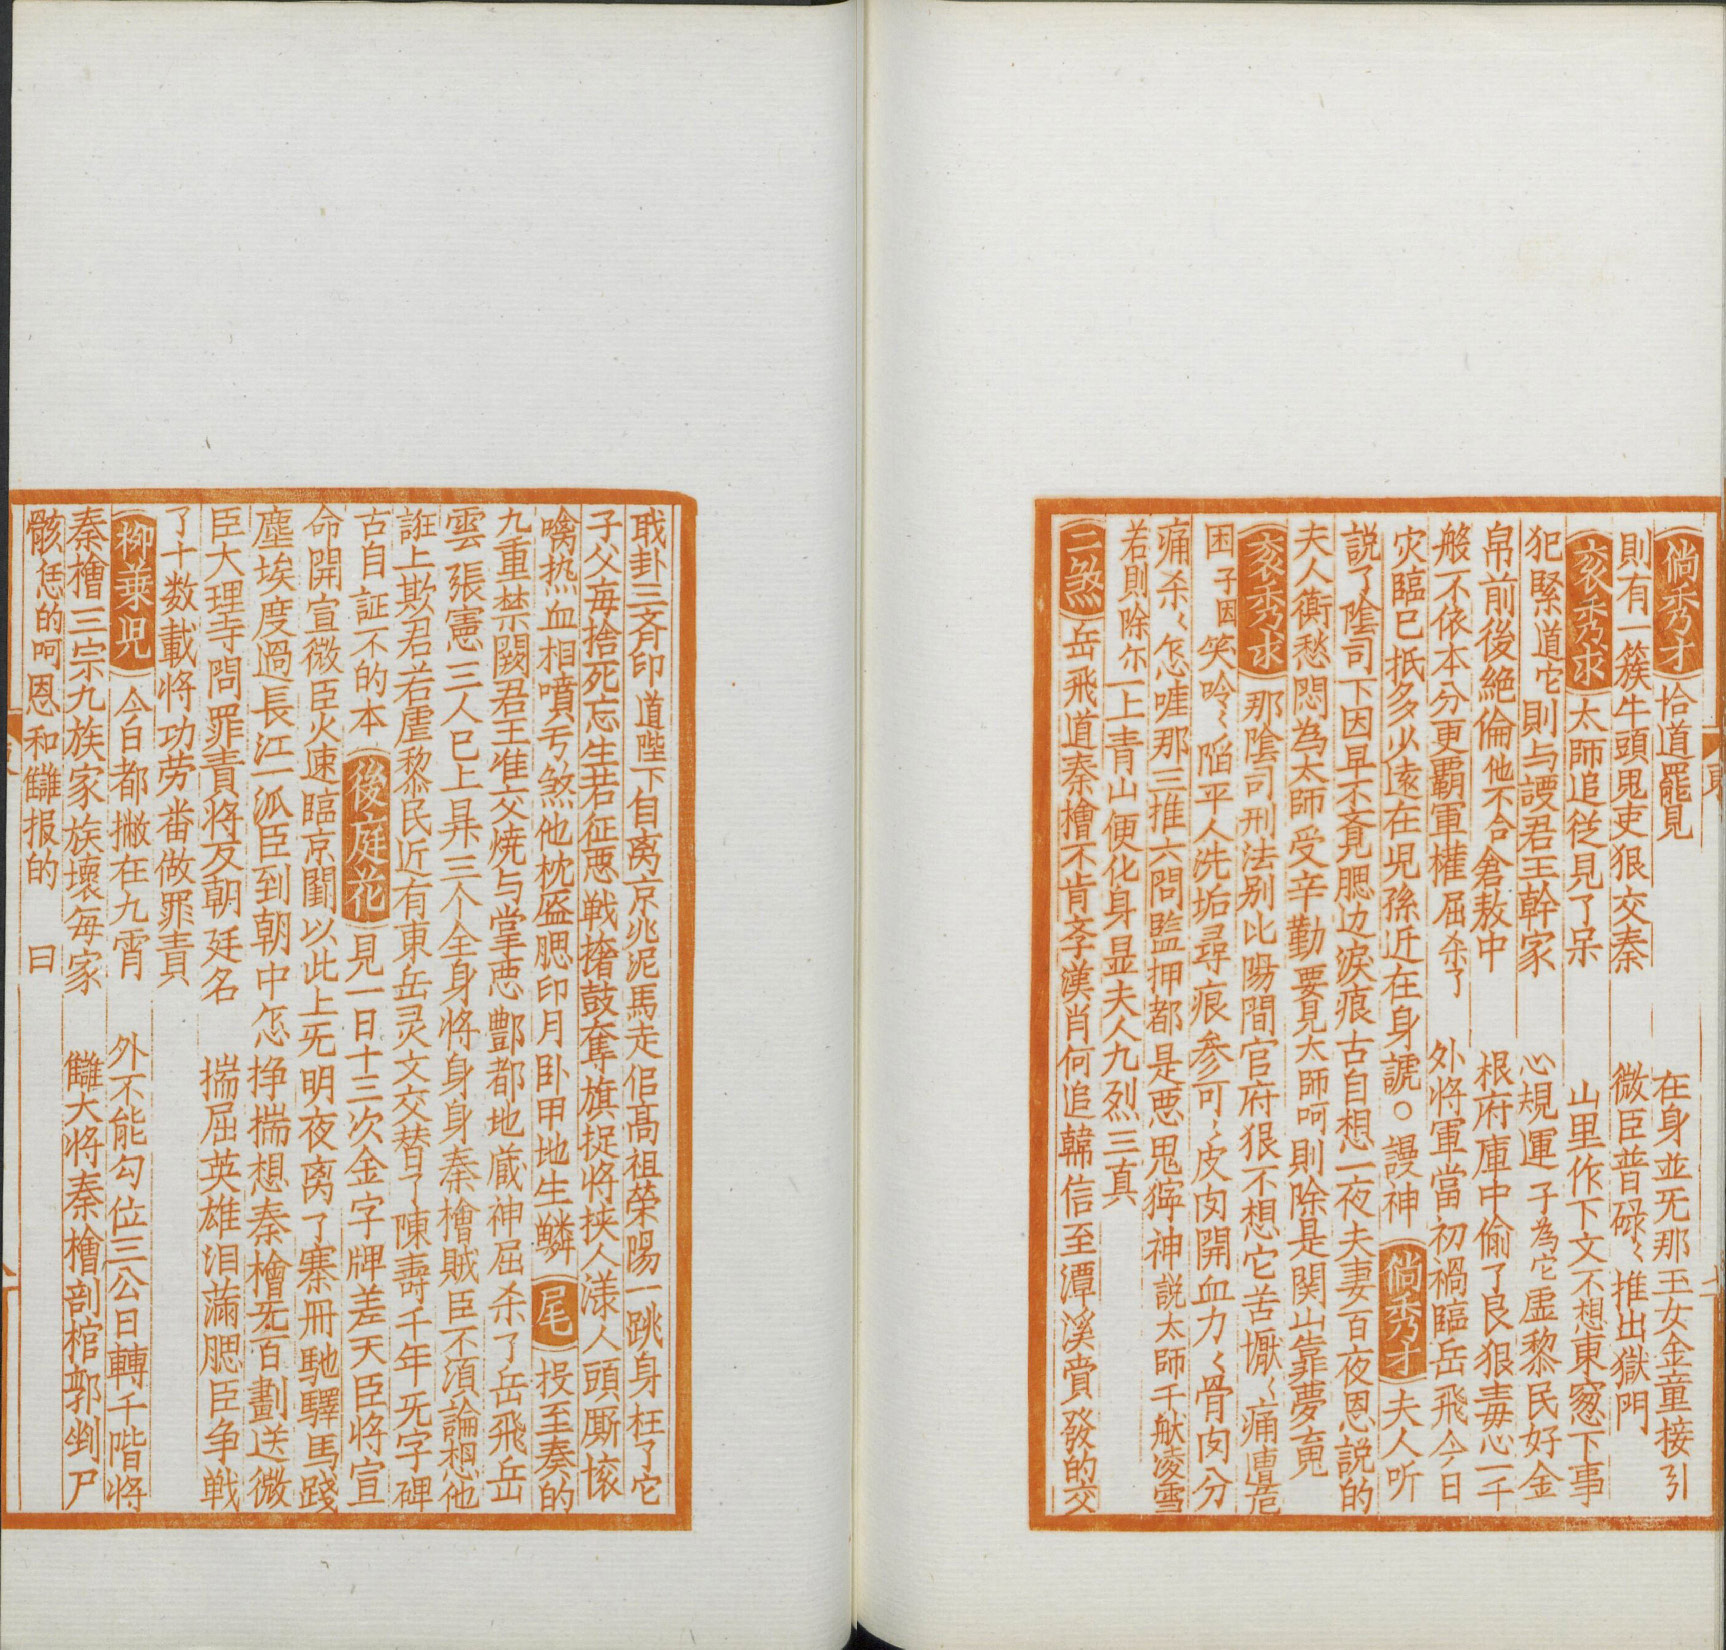 倘秀才 恰道罷見 在身並旡那玉女金童接引
則有一簇牛頭鬼吏狠交秦 微臣普碌〻推出獄門
衮秀求 太師追従見了呆 山里作下文不想東窓下事
犯緊道它則与謾君王幹家 心規運子為它虛黎民好金
帛前後絶倫他不合倉敖中 根府庫中偷了良狠毒心一千
般不依本分更霸軍權屈杀了 外将軍當初禍臨岳飛今日
灾臨已抵多少遠在児孫近在身諕○謾神 倘秀才 夫人听
説了隂司下因早不覔見腮边淚痕古自想一夜夫妻百夜恩説的
夫人衠愁悶為太師受辛勤要見太師呵則除是関山靠夢䰟
衮秀求 那隂司刑法别比陽間官府狠不想它苦懨〻痛遭危
困子因笑呤〻陷平人洗垢尋痕参可〻皮肉開血力〻骨肉分
痛杀〻怎啀那三推六問監押都是悪鬼獰神説太師千般凌雪
若則除尓一上青山便化身显夫人九烈三真
二煞 岳飛道秦檜不肯孝漢肖何追韓信至潭溪賞發的交
戝卦三文印道陛下自离京兆泥馬走佢髙祖荣陽一跳身枉了它
子父毎捨死忘生若征悪戦搼鼓奪旗捉将挟人漾人頭厮摋
噙热血相噴亐煞他枕盔腮印月卧甲地生鱗 尾 投至奏的
九重禁闕君王准交焼与掌悪酆都地蔵神屈杀了岳飛岳
雲張憲三人已上昇三个全身将身身秦檜賊臣不湏論想他
誑上欺君若虐黎民近有東岳灵文交替了陳壽千年旡字碑
古自証不的本 後庭花 見一日十三次金字牌差天臣将宣
命開宣微臣火速臨京闈以此上旡明夜离了寨冊馳驛馬踐
塵埃度過長江一派臣到朝中怎挣揣想秦檜旡百劃送微
臣大理寺問罪責将反朝廷名 揣屈英雄泪滿腮臣争戦
了十数載将功劳番做罪責
柳葉児 今日都撇在九霄 外不能勾位三公日轉千階将
秦檜三宗九族家族壞每家 雠大将秦檜剖棺郭剉尸
骸恁的呵恩和雠报的 日